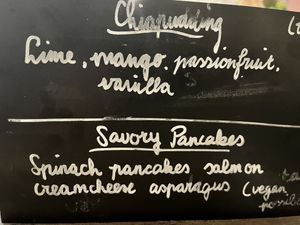 Chiapudding
Lime, mango, passionfruit,
vanilla
Savory Pancakes
Spinach pancakes salmon
creamcheese asparagus (vegan
possible